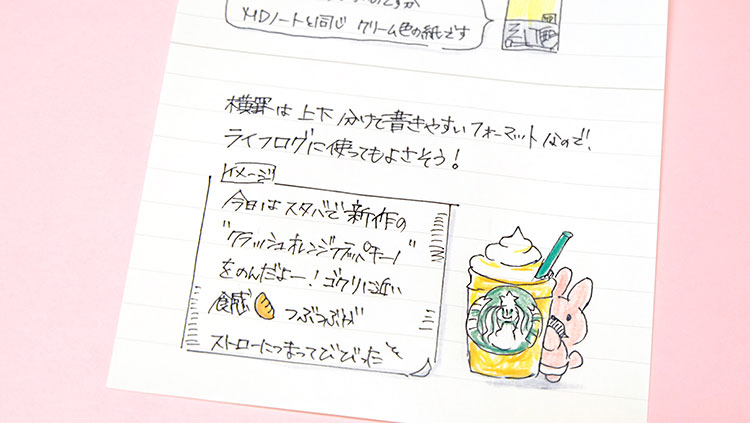 ですが
MDノートと同じ クリーム色の紙です
横罫は上下分けて書きやすいフォーマットなので、
ライフログに使ってもよさそう！
イメージ
今日はスタバで新作の
"クラッシュオレンジフラッペチーノ"
をのんだよー！ゴクリに近い
食感 つぶつぶが
ストローにつまってびびった